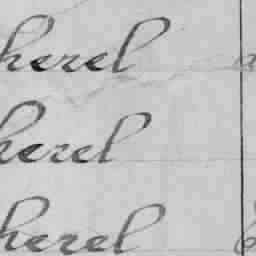 herel
herel
herel